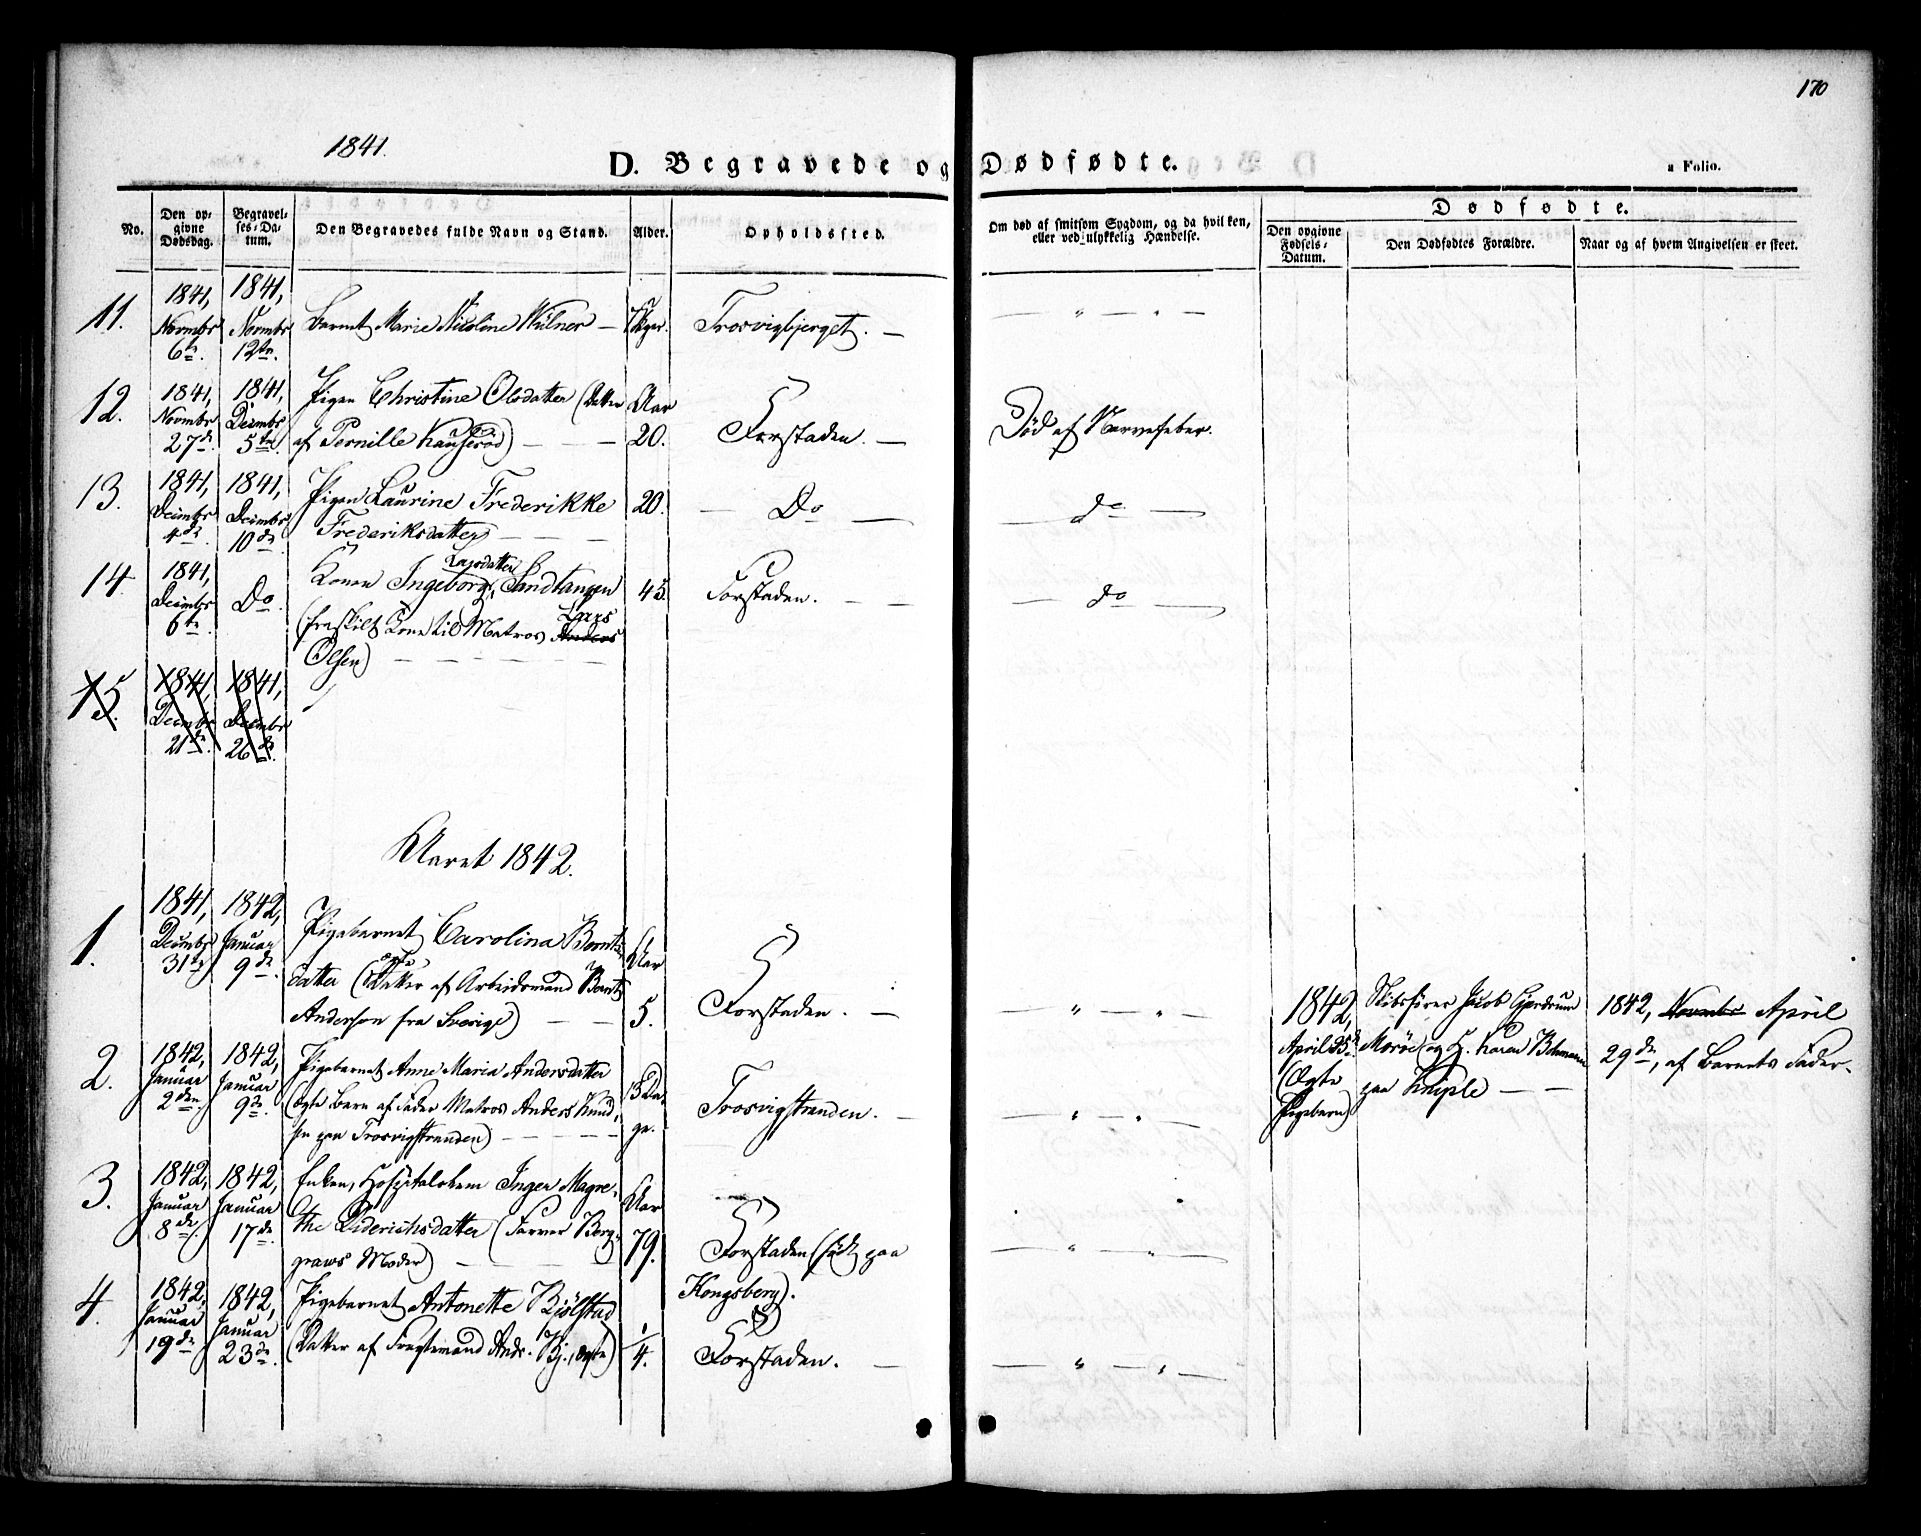 170
1841.
D. Begravede og Dødfødte.
a Folio.
No.
Den opgivne Dødsdag.
Begravelses-Datum.
Den Begravedes fulde Navn og Stand.
Alder.
Opholdssted.
Om død af smitsom Sygdom, og da hvilken,
eller ved ulykkelig Hændelse.
Dødfødte.
Den opgivne Fødsels-Datum.
Den Dødfødtes Forældre.
Naar og af hvem Angivelsen er skeet.
11. 1841, Novmbr 6te. 1841, Novmbr 12te.
Barnet Marie Nicoline Wülner —
Trosvigbjerget. —
12. 1841, Novmbr 27de. 1841, Decmbr 5te.
Pigen Christine Olsdatter (Datter
af Pernille Hauserød) — — —
Aar 20.
Forstaden. —
Død af Nervefeber.
13. 1841, Decmbr 4de. 1841, Decmbr 10de.
Pigen Laurine Frederikke
Frederiksdatter — — —
20.
— Do —
— do —
14. 1841, Decmbr 6te. Do.
Larsdatter
Konen Ingeborg Sandtangen
(fraskilt Kone til Matros Anders Lars
Olsen) — — — —
45.
Forstaden. — —
— do —
15. 1841, Decmbr 21de. 1841, Decmbr 26de.
Aaret 1842.
1. 1841, Decmbr 31te 1842, Januar 9de.
Pigebarnet Carolina Bernts
datter (ægte Datter af Arbeidsmand Bernt
Anderson fra Sverige) — —
Aar 5.
Forstaden. —
— " — " —
1842, April 25de. (Ægte Pigebarn)
Skibsfører Jacob Gjerdrum
Morøe og H. Karen
paa Kniple — —
1842, Novmbr April
29de, af Barnets Fader.
2. 1842, Januar 2den 1842, Januar 9de.
Pigebarnet Anne Maria Andersdatter
(ægte Barn af Fader Matros Anders Knud-
sen paa Trosvigstranden) — — —
15 Da-
ge.
Trosvigstranden. —
— " — " —
3. 1842, Januar 8de. 1842, Januar 17de.
Enken, Hospitalslem Inger Magre-
the Diderichsdatter (Farver Berg-
graws Moder) — — —
Aar 79.
Forstaden (født paa
Kongsberg).
— " — " —
4. 1842, Januar 19de 1842, Januar 23de.
Pigebarnet Antonette Bjølstad
(Datter af Fragtemand Andr. Bj., ægte)
1/4.
Forstaden. —
— " — " —